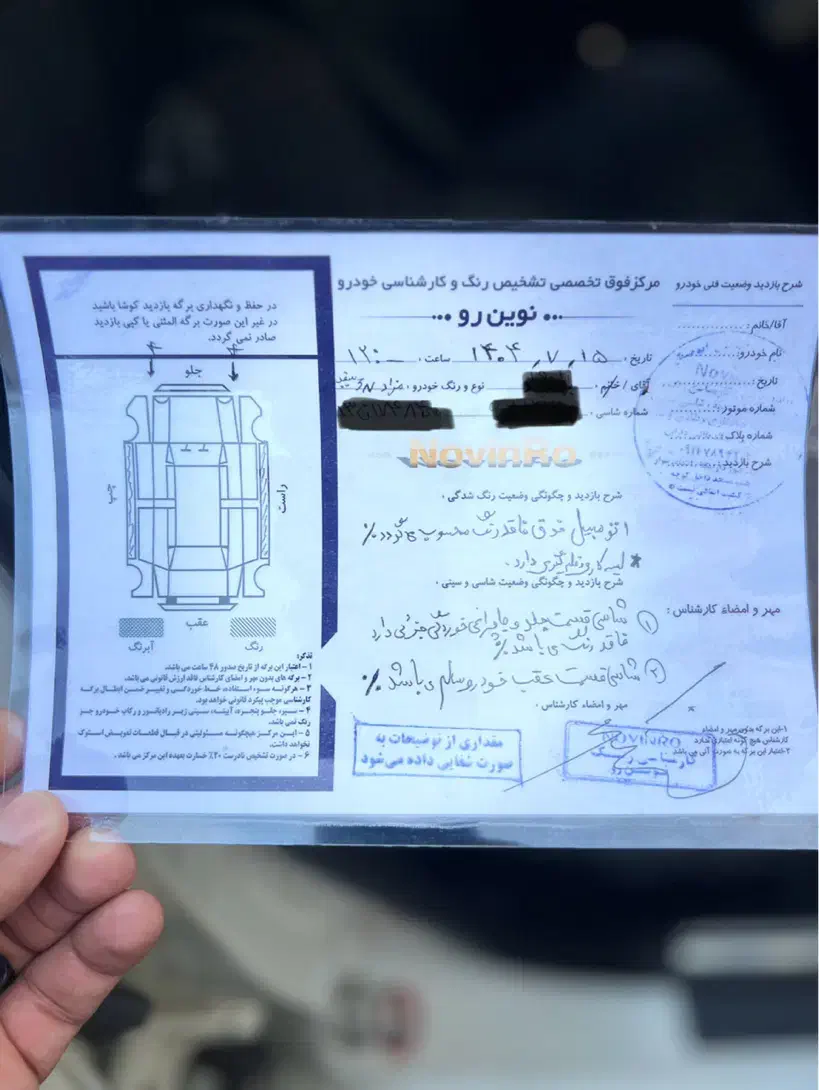 شرح بازدید وضعیت فنی خودرو
آقا/خانم :
نام خودرو:
تاریخ :
شماره موتور :
شماره پلاک
شرح بازدید :
مهر و امضاء کارشناس :
۱-این برگه بدون مهر و امضاء
کارشناس هیچ گونه اعتباری ندارد
مرکز فوق تخصصی تشخیص رنگ و کارشناسی خودرو
... نوین رو ...
تاریخ : ۱۴۰۴,۷,۱۵ ساعت : ۱۲:۰۰
آقای / خانم : نوع و رنگ خودرو :
شماره شاسی :
NovinRo
شرح بازدید و چگونگی وضعیت رنگ شدگی :
اتومبیل فوق فاقد رنگ محسوب می گردد٪
شرح بازدید و چگونگی وضعیت شاسی و سینی :
۱ شاسی قسمت جلو خوردگی جزئی دارد
فاقد رنگ می باشد٪
۲ شاسی قسمت عقب خودرو سالم می باشد٪
مهر و امضاء کارشناس :
مقداری از توضیحات به
صورت شفایی داده می‌شود
NOVINRO
کارشناسی رنگ
نوین رو
در حفظ و نگهداری برگه بازدید کوشا باشید
در غیر این صورت برگه المثنی یا کپی بازدید
صادر نمی گردد.
جلو
چپ
راست
عقب
آبرنگ
رنگ
تذکر:
۱ – اعتبار این برگه از تاریخ صدور ۴۸ ساعت می باشد.
۲ – برگه های بدون مهر و امضای کارشناس فاقد ارزش قانونی می باشد.
۳ – هرگونه سوء استفاده، خط خوردگی و تغییر ضمن ابطال برگه
کارشناسی موجب پیگرد قانونی خواهد بود.
۴ – سپر، جلو پنجره، آیینه، سینی زیر رادیاتور و رکاب خودرو جز
رنگ نمی باشد.
۵ – این مرکز هیچگونه مسئولیتی در قبال قطعات تعویض استرک
نخواهد داشت.
۶ – در صورت تشخیص نادرست ۲۰٪ خسارت بعهده این مرکز می باشد .